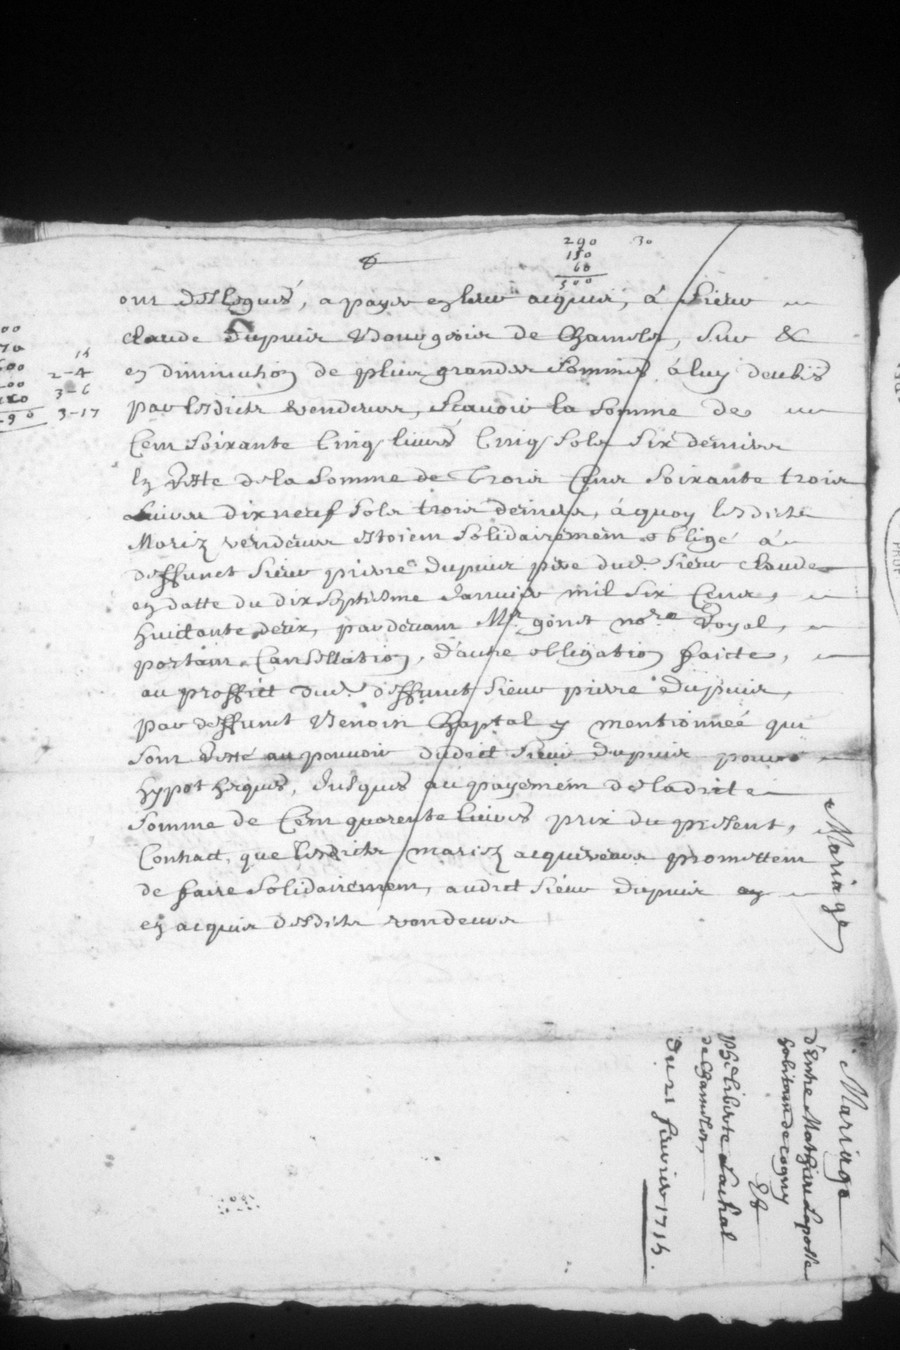 290 30
150
60
500
ont desleguć, a payer en leur acquit, á Sieur
claude Dupuis Bourgeois de Chamelet, sur &
en diminution de plus grandes Sommes á luy deubs
par lesdicts vendeurs, Scauoir la Somme de
Cent Soixante Cinq liures Cinq Sols Six deniers
En reste de la Somme de Trois Cens Soixante trois
Liures dixneuf Sols trois deniers, á quoy lesdicts
Mariez vendeurs estoient Solidairement obligé á
deffunct Sieur pierre Dupuis pere dud. Sieur claude
en datte du dix Septiesme Januier mil Six Cens,
huictante deux, pardeuant Mr gonet nore Royal,
portant Cancellation, d'autre obligation faicte,
au proffict dud. deffunct Sieur pierre Dupuis,
par deffunct Benoin Chaptal y mentionnéé qui
Sont resté au pouuoir dudict Sieur Dupuis pour
hypotheques, Jusques au payement de ladicte
Somme de Cent quarente liures prix du present,
Contract, que lesdicts mariez acquereurs promettent
de faire Solidairement, audict Sieur Dupuis
en acquit desdicts vendeurs
15
2-4
3-6
3-17
Mariage
Mariage
d'Entre Mathieu Laposse
habitant de cogny
&
Philiberte Lachal
de Chamelet,
Du 21 feurier 1715.